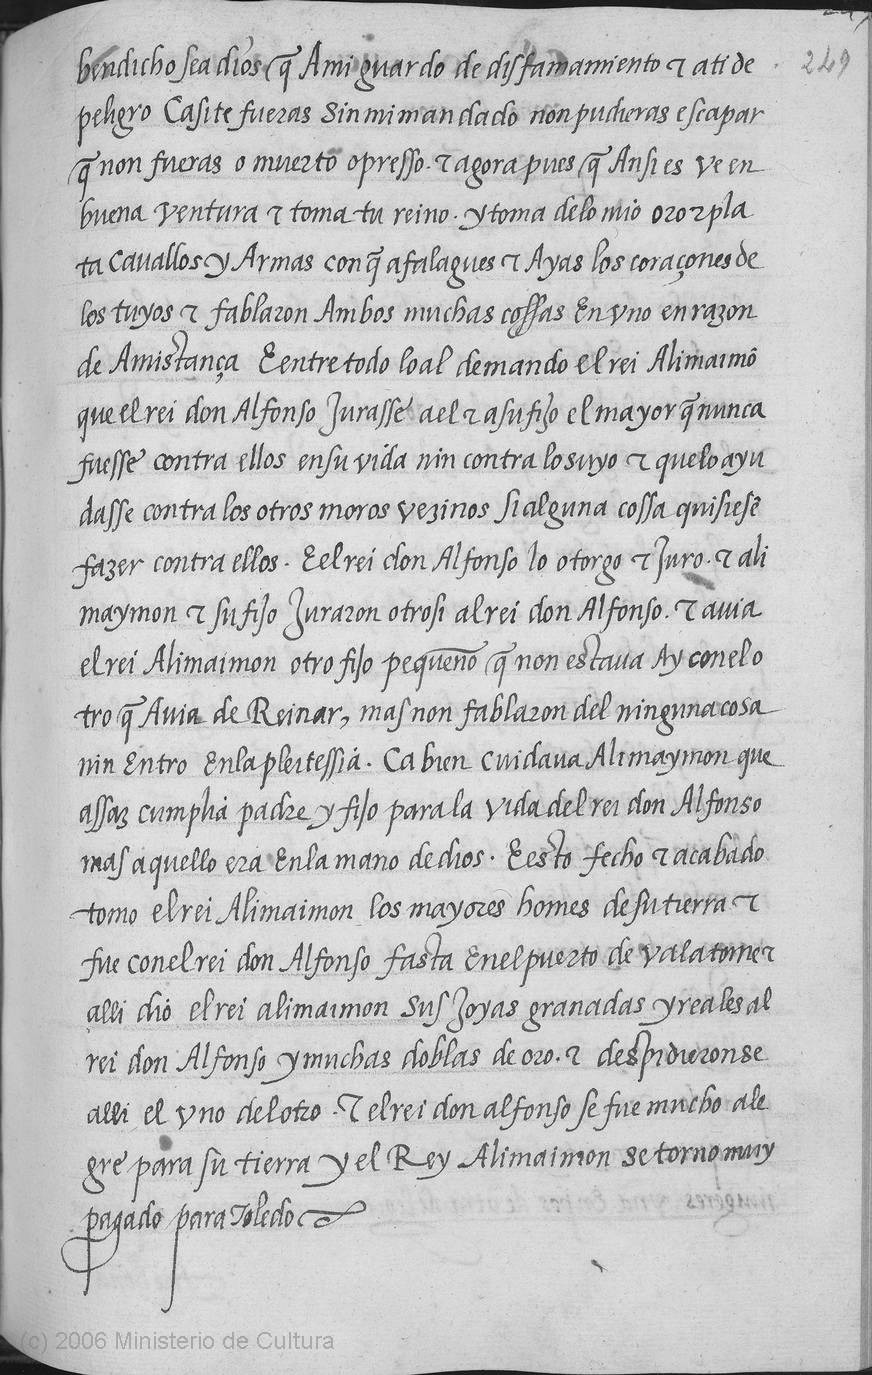 249
bendicho sea dios q̃ Ami guardo de disfamamiento τ ati de
peligro Casite fueras sin mi mandado non pudieras escapar
q̃ non fueras o muerto opresso. τ agora pues q̃ Ansi es ve en
buena ventura τ toma tu reino. y toma delo mio oro τ pla
ta cavallos y Armas con q̃ afalagues τ Ayas los coraçones de
los tuyos τ fablaron Ambos muchas cossas En vno en razon
de Amistança E entre todo lo al demando el rei Alimaimõ
que el rei don Alfonso Jurasse a el τ a su fijo el mayor q̃ nunca
fuesse contra ellos en su vida nin contra lo suyo τ que lo ayu
dasse contra los otros moros vezinos si alguna cossa quisiesẽ
fazer contra ellos. E el rei don Alfonso lo otorgo τ Juro. τ ali
maymon τ su fijo Juraron otrosi al rei don Alfonso. τ avia
el rei Alimaimon otro fijo pequeño q̃ non estava Ay con el o
tro q̃ Avia de Reinar, mas non fablaron del ninguna cosa
nin Entro En la pleitessia. Ca bien cuidaua Alimaymon que
assaz cumplia padre y fijo para la vida del rei don Alfonso
mas aquello era En la mano de dios. E esto fecho τ acabado
tomo el rei Alimaimon los mayores homes de su tierra τ
fue con el rei don Alfonso fasta En el puerto de valatome τ
alli dió el rei alimaimon sus Joyas granadas y reales al
rei don Alfonso y muchas doblas de oro. τ despidieronse
alli el vno del otro. τ el rei don alfonso se fue mucho ale
gre para su tierra y el Rey Alimaimon se torno muy
pagado para Toledo
(c) 2006 Ministerio de Cultura